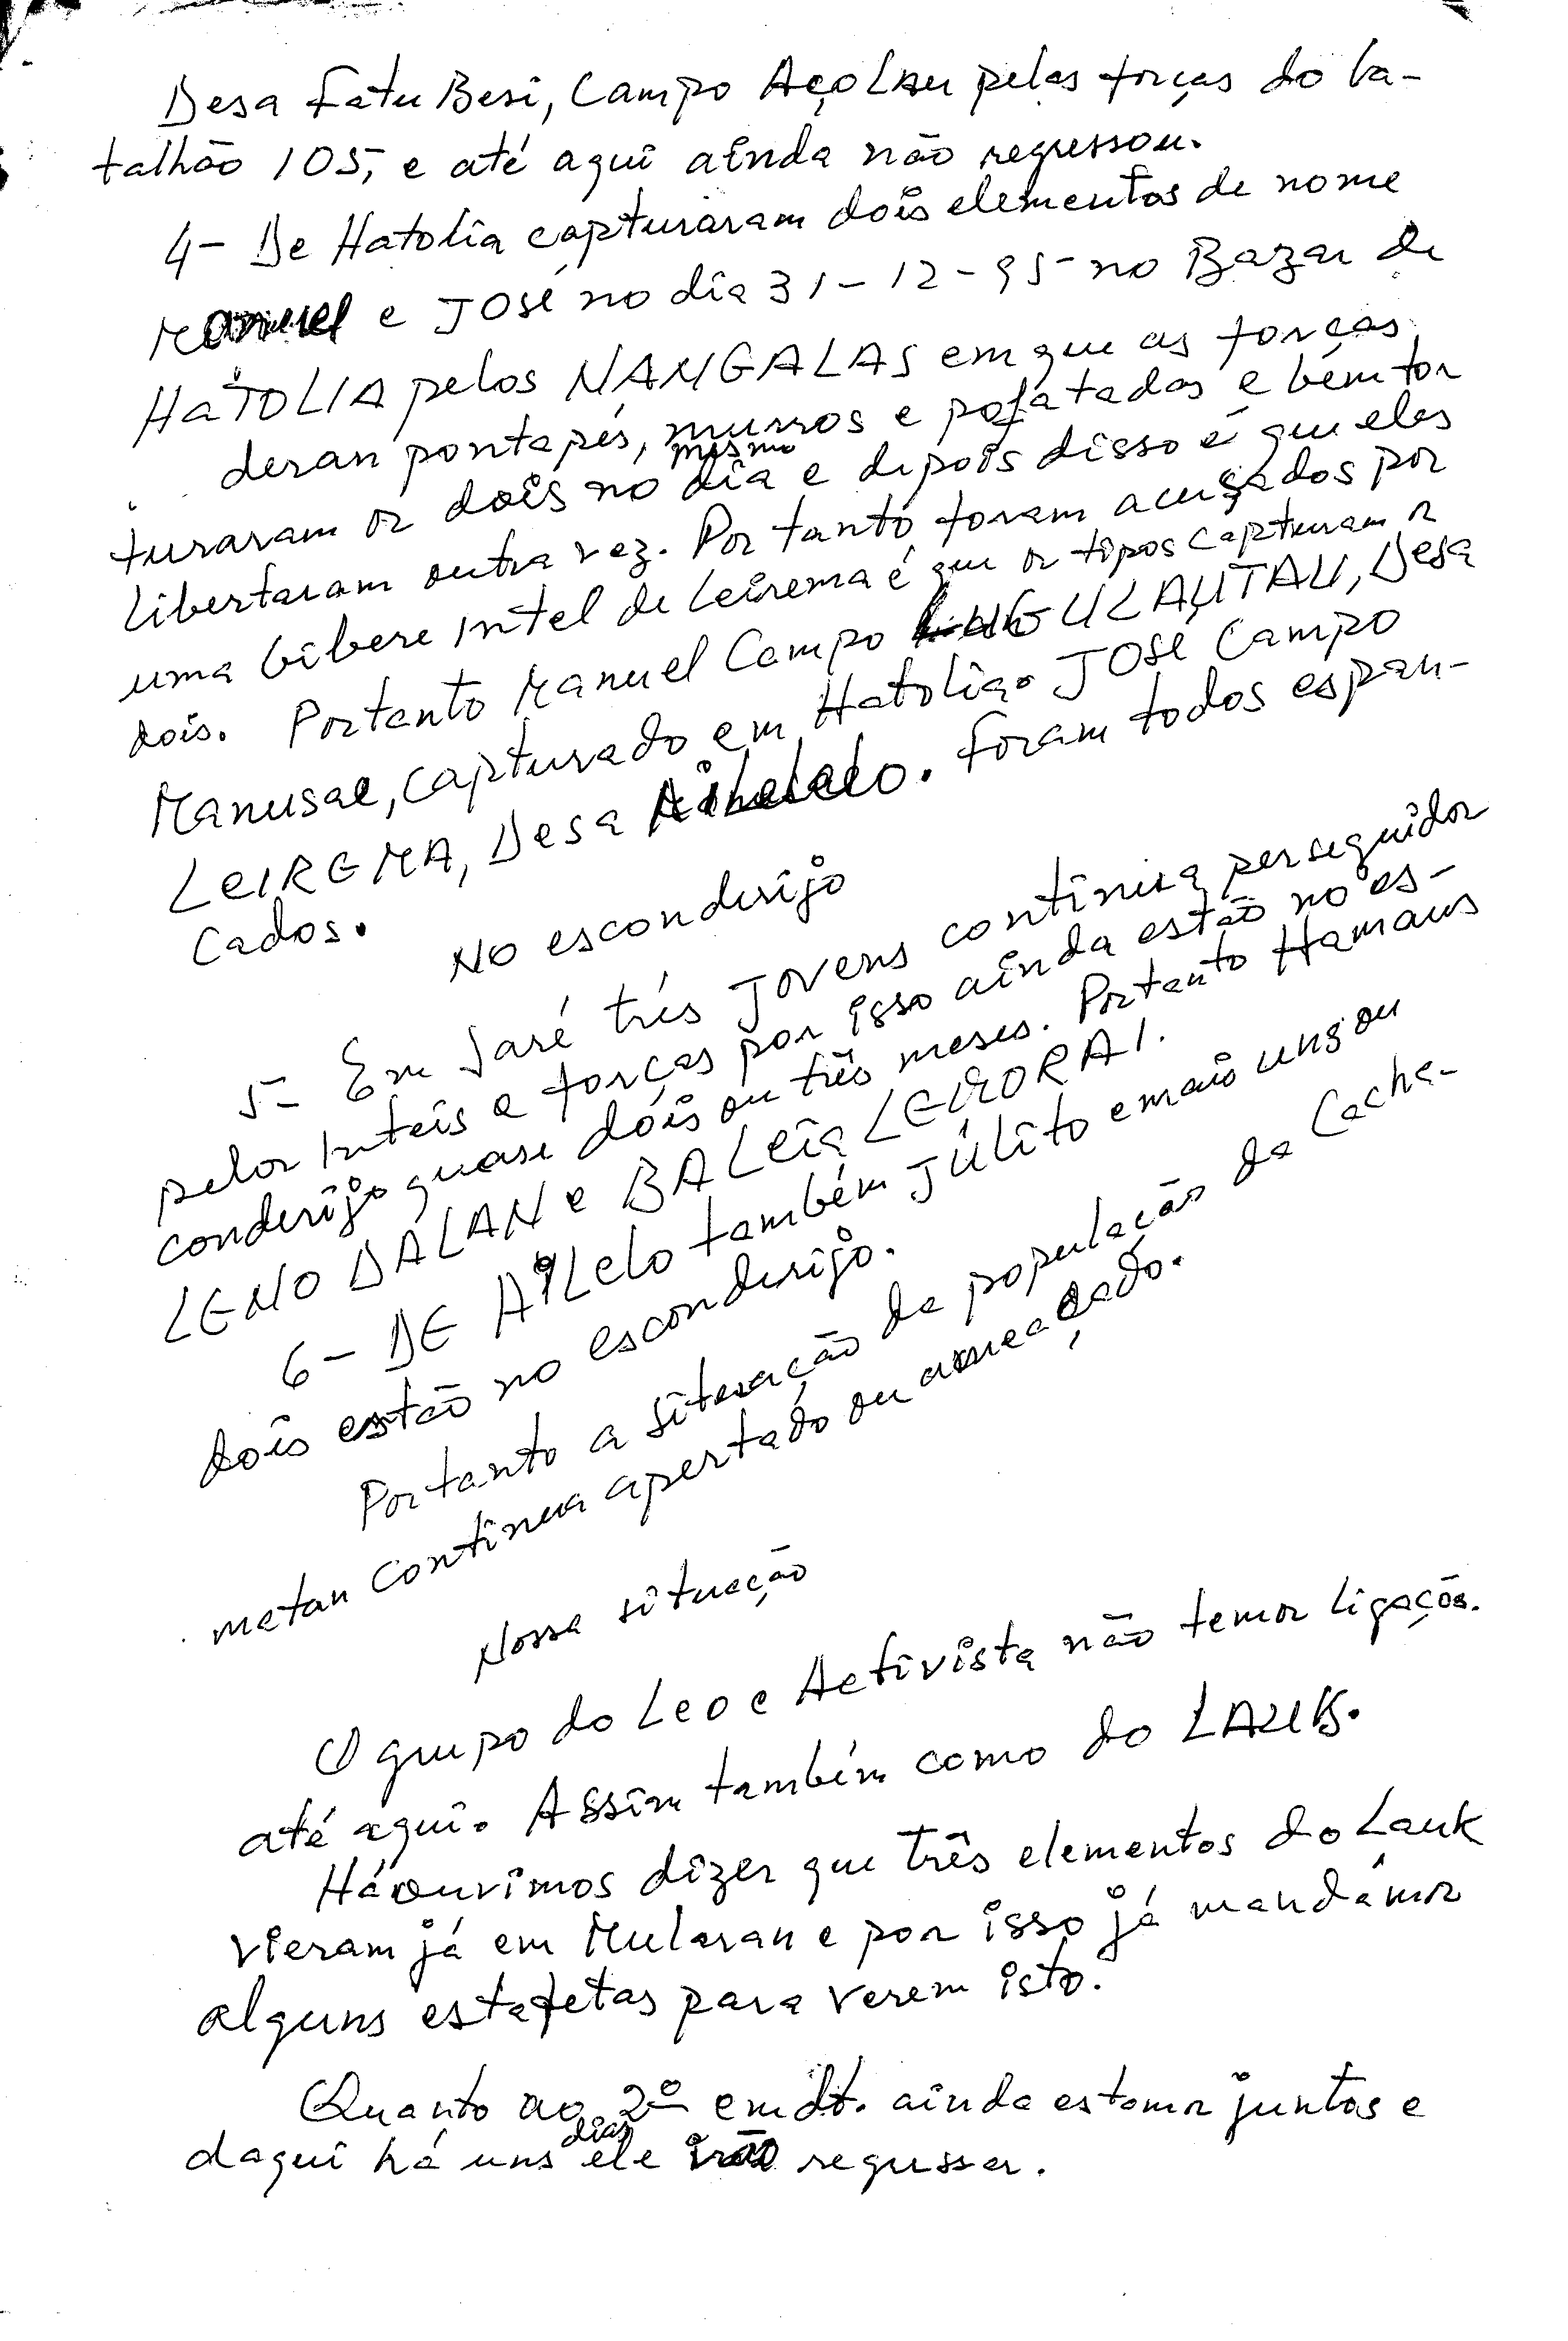 Desa Fatu Besi, Campo Açolau pelas forças do ba-
talhão 105, e até aqui ainda não regressou.
4- De Hatolia capturaram dois elementos de nome
Manuel e JOSÉ no dia 31-12-95 no Bazar de
HATOLIA pelos NANGALAS em que as forças
deram pontapés, murros e pofatadas e bém tor
turaram os dois no mesmo dia e depois disso é que eles
libertaram outra vez. Portanto foram acusados por
uma bibere intel de Leirema é que os tipos capturam os
dois. Portanto Manuel Campo ULAUTAU, Desa
Manusae, capturado em Hatolia. JOSÉ Campo
LEIREMA, Desa Ailelelo. Foram todos espan-
cados.
No esconderijo
5- Em Saré três jovens continua perseguidos
pelos Inteis e forças por isso ainda estão no es-
conderijo quase dois ou três meses. Portanto Hamaus
LENO DALAN e BALEIA LEMORAI.
6- DE AILelo também Júlito e mais uns ou
dois estão no esconderijo.
Portanto a situação da população da Cacha-
metan continua apertado ou ameaçado.
Nossa situação
O grupo do Leo e Activista não temos ligações.
até aqui. Assim também como do LAUK.
Há ouvimos dizer que três elementos do Lauk
vieram já em Mularan e por isso já mandámos
alguns estafetas para verem isto.
Quanto ao 2º cmdt. ainda estamos juntos e
daqui há uns dias ele irão regressar.